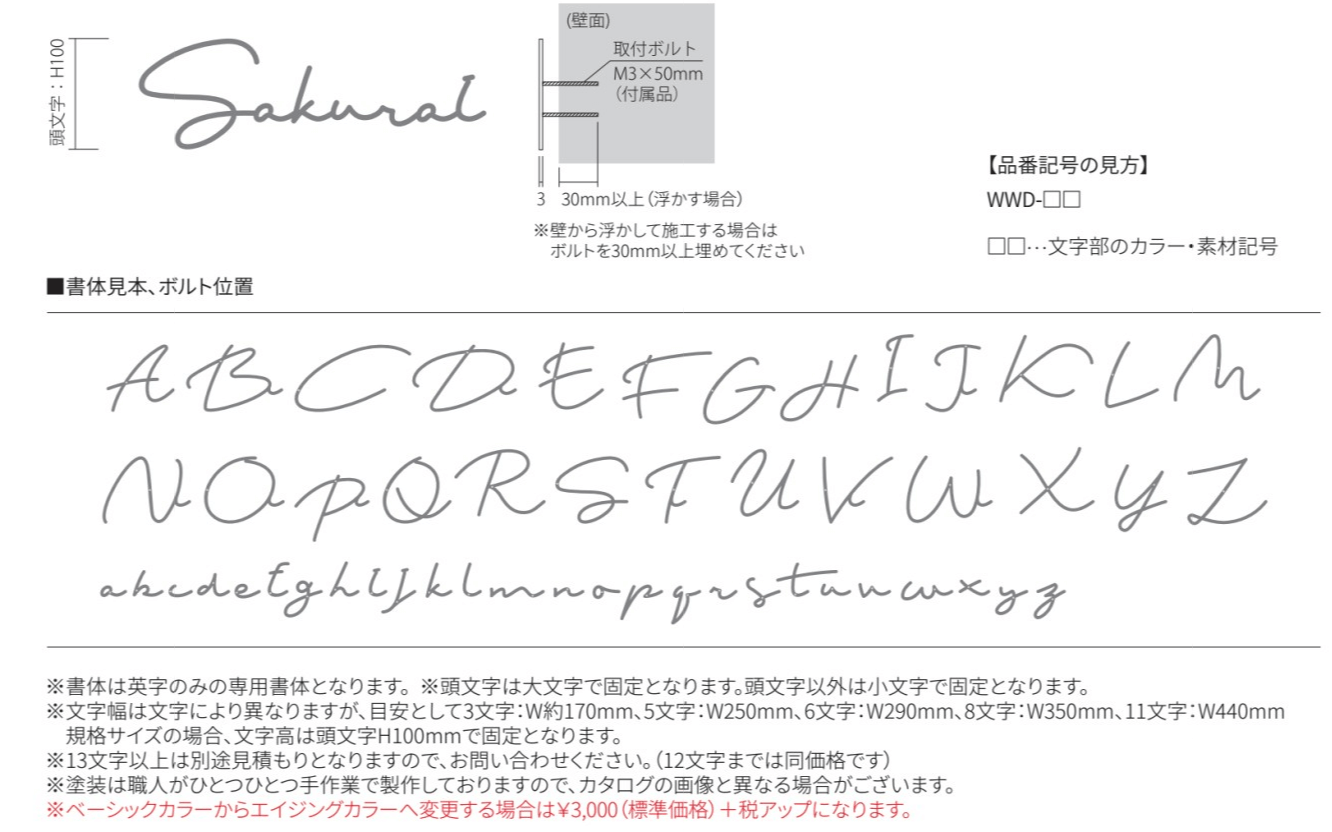 頭文字：H100
Sakurai
(壁面)
取付ボルト
M3×50mm
（付属品）
3 30mm以上（浮かす場合）
※壁から浮かして施工する場合は
ボルトを30mm以上埋めてください
【品番記号の見方】
WWD-□□
□□…文字部のカラー・素材記号
■書体見本、ボルト位置
A B C D E F G H I J K L M
N O P Q R S T U V W X Y Z
a b c d e f g h i j k l m n o p q r s t u v w x y z
※書体は英字のみの専用書体となります。 ※頭文字は大文字で固定となります。頭文字以外は小文字で固定となります。
※文字幅は文字により異なりますが、目安として3文字：W約170mm、5文字：W250mm、6文字：W290mm、8文字：W350mm、11文字：W440mm
規格サイズの場合、文字高は頭文字H100mmで固定となります。
※13文字以上は別途見積もりとなりますので、お問い合わせください。（12文字までは同価格です）
※塗装は職人がひとつひとつ手作業で製作しておりますので、カタログの画像と異なる場合がございます。
※ベーシックカラーからエイジングカラーへ変更する場合は¥3,000（標準価格）＋税アップになります。